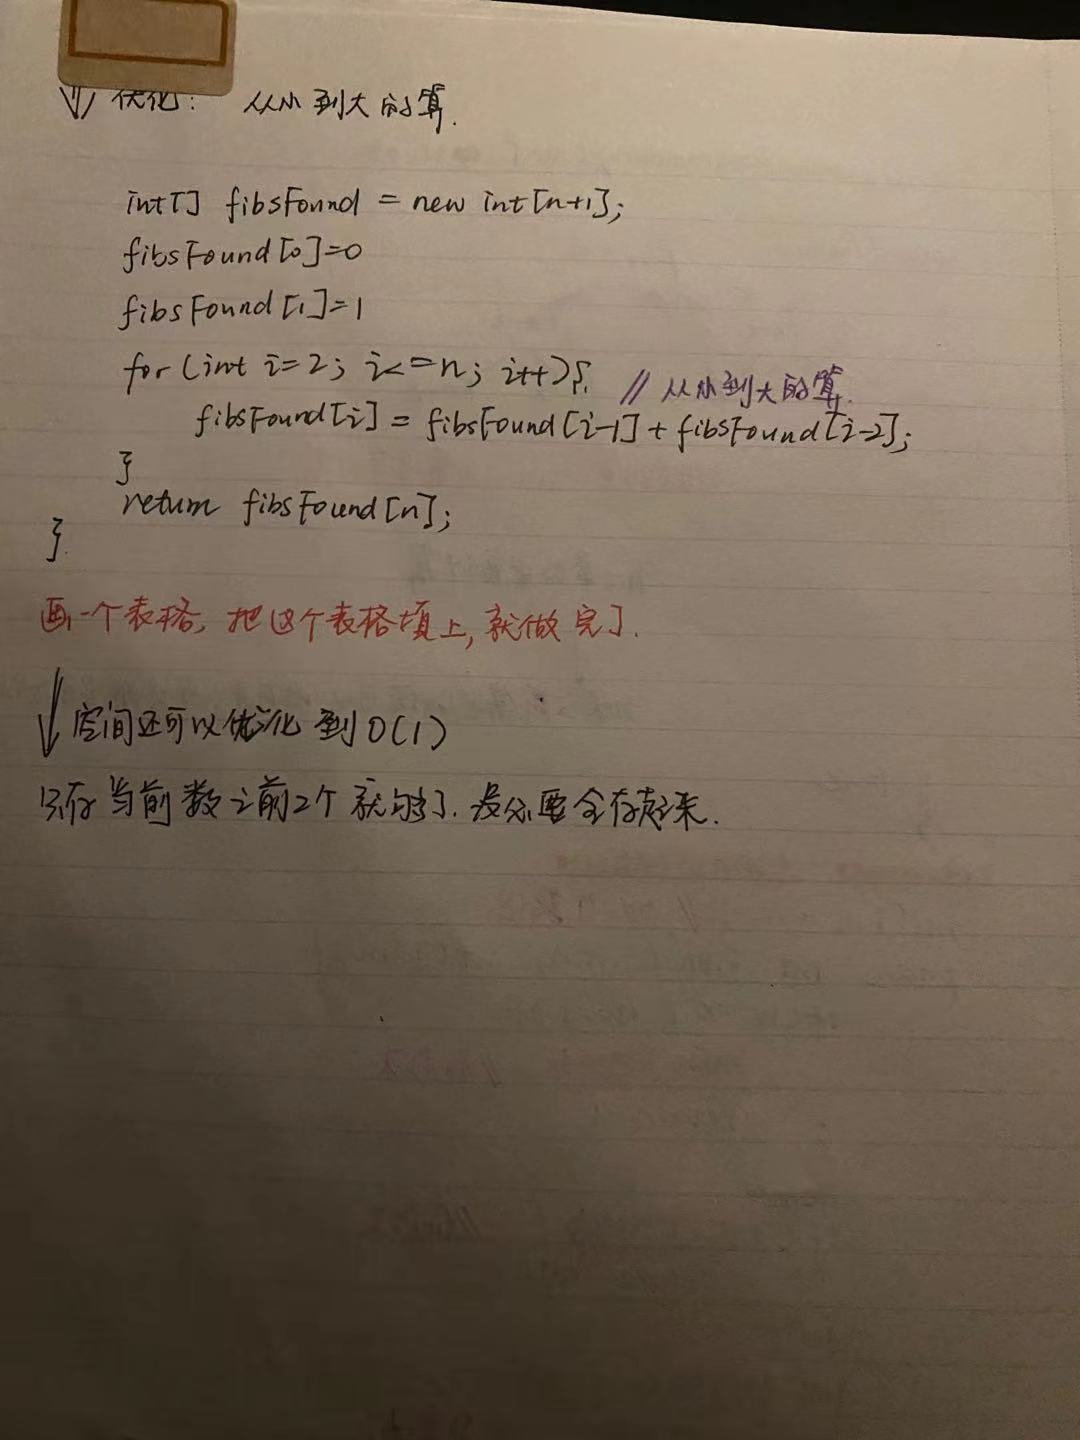 优化: 从小到大的算.
int[] fibsFound = new int[n+1];
fibsFound[0]=0
fibsFound[1]=1
for (int i=2; i<=n; i++){ // 从小到大的算.
fibsFound[i] = fibsFound[i-1] + fibsFound[i-2];
}
return fibsFound[n];
}
画一个表格, 把这个表格填上, 就做完了.
空间还可以优化到O(1)
只存当前数之前2个就够了. 没必要全存起来.